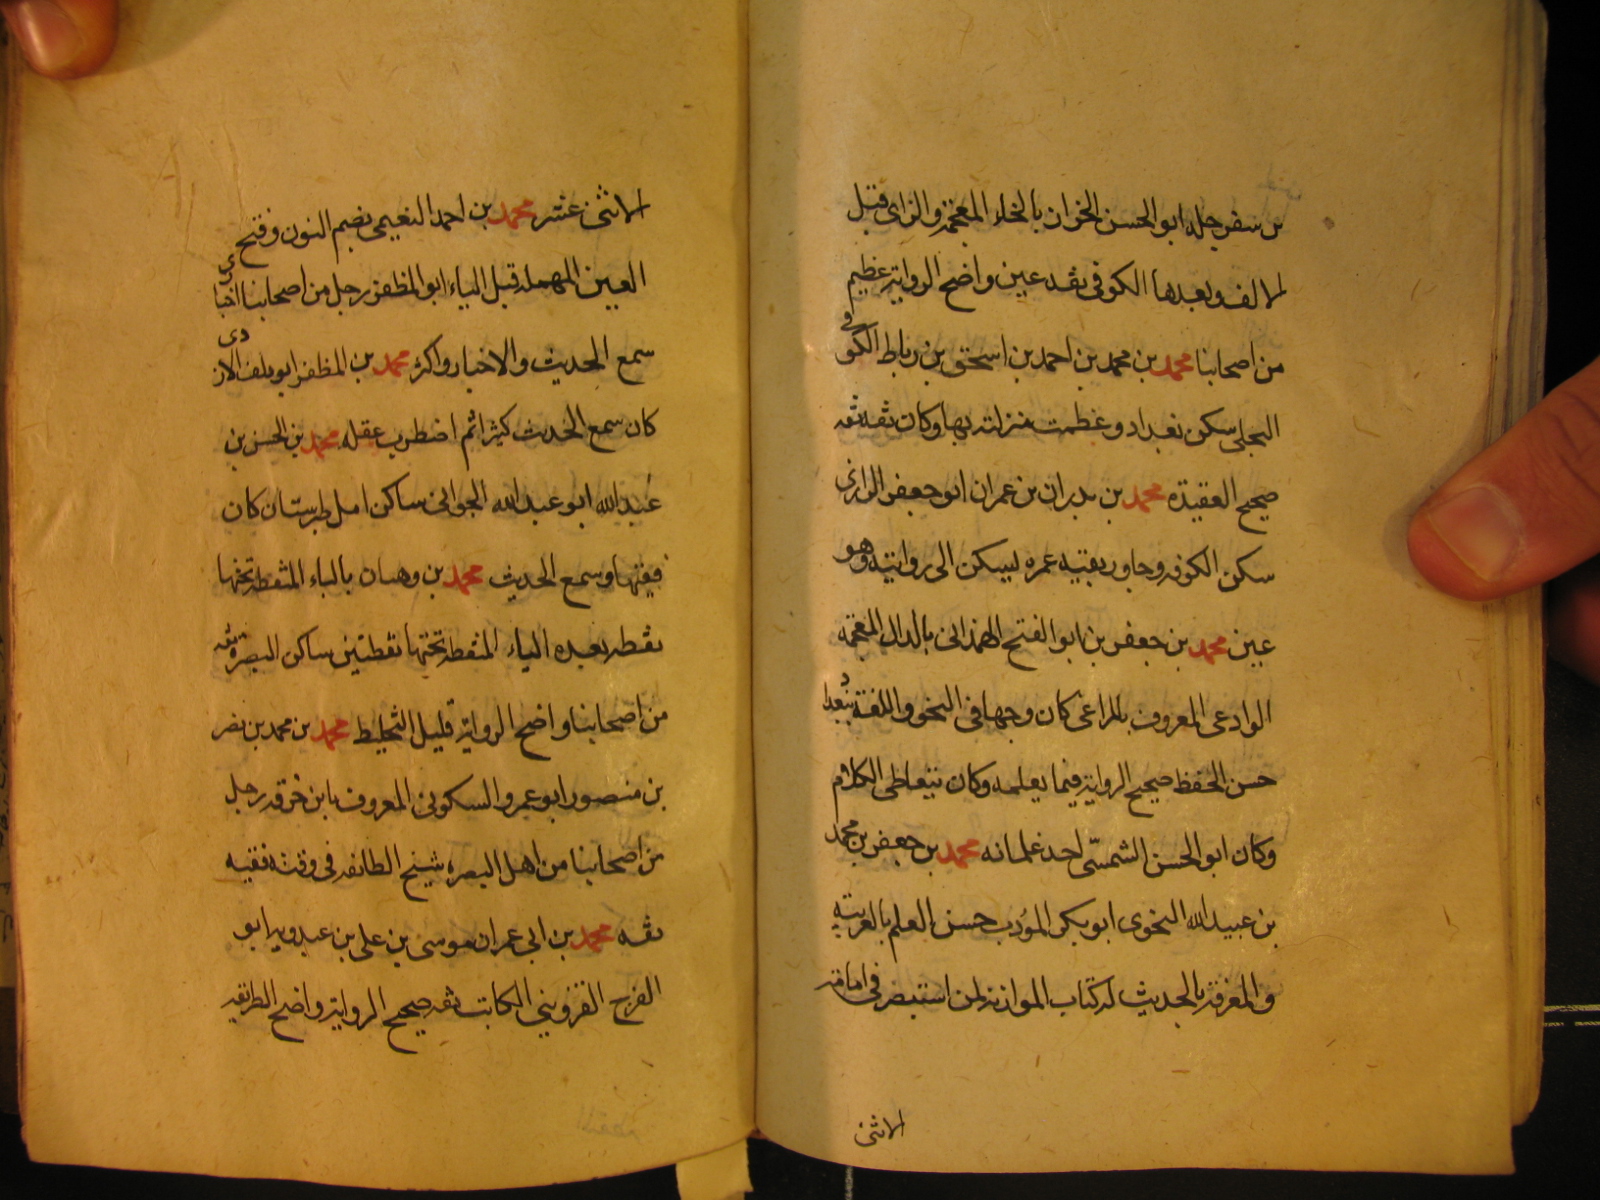 بن سفرجله ابو الحسن الخزاز بالخاء المعجمة والزاى قبل
الالف وبعدها الكوفى ثقه عين واضح الرواية عظيم
من اصحابنا محمد بن محمد بن احمد بن اسحق بن رباط الكوفى
البجلى سكن بغداد وعظمت منزلته بها وكان ثقه ثقه
صحيح العقيده محمد بن بدران بن عمران ابو جعفر الرازى
سكن الكوفه وجاور بقيه عمره ليسكن الى روايته وهو
عين محمد بن جعفر بن ابو الفتح الهمذانى بالدال المعجمه
الوادعى المعروف بالمراغى كان وجها فى النحو واللغة ببغداد
حسن الحفظ صحيح الرواية فيما يعلمه وكان يتعاطى الكلام
وكان ابو الحسن الشمسى احد غلمانه محمد بن جعفر بن محمد
بن عبيد الله النحوى ابو بكر المؤدب حسن العلم بالعربيته
والمعرفة بالحديث له كتاب الموازنة لمن استبصر فى امامة
الاثنى
الاثنى عشر محمد بن احمد النعيمى بضم النون وفتح
العين المهملة قبل الياء ابو المظفر رجل من اصحابنا اخبارى
سمع الحديث والاخبار واكثر محمد بن المظفر ابو دلف الازدى
كان سمع الحديث كثيرا ثم اضطرب عقله محمد بن الحسن بن
عبد الله ابو عبد الله الجوانى ساكن امل طبرستان كان
فقيها وسمع الحديث محمد بن وهبان بالباء المنقطه تحتها
نقطه بعده الياء المنقطه تحتها نقطتين ساكن البصرة ثقه
من اصحابنا واضح الرواية قليل التخليط محمد بن محمد بن نضر
بن منصور ابو عمرو السكونى المعروف بابن خرقه رجل
من اصحابنا من اهل البصره شيخ الطائفه فى وقته فقيه
ثقه محمد بن ابى عمران موسى بن على بن عبدويه ابو
الفرج القزوينى الكاتب ثقه صحيح الرواية واضح الطريقه